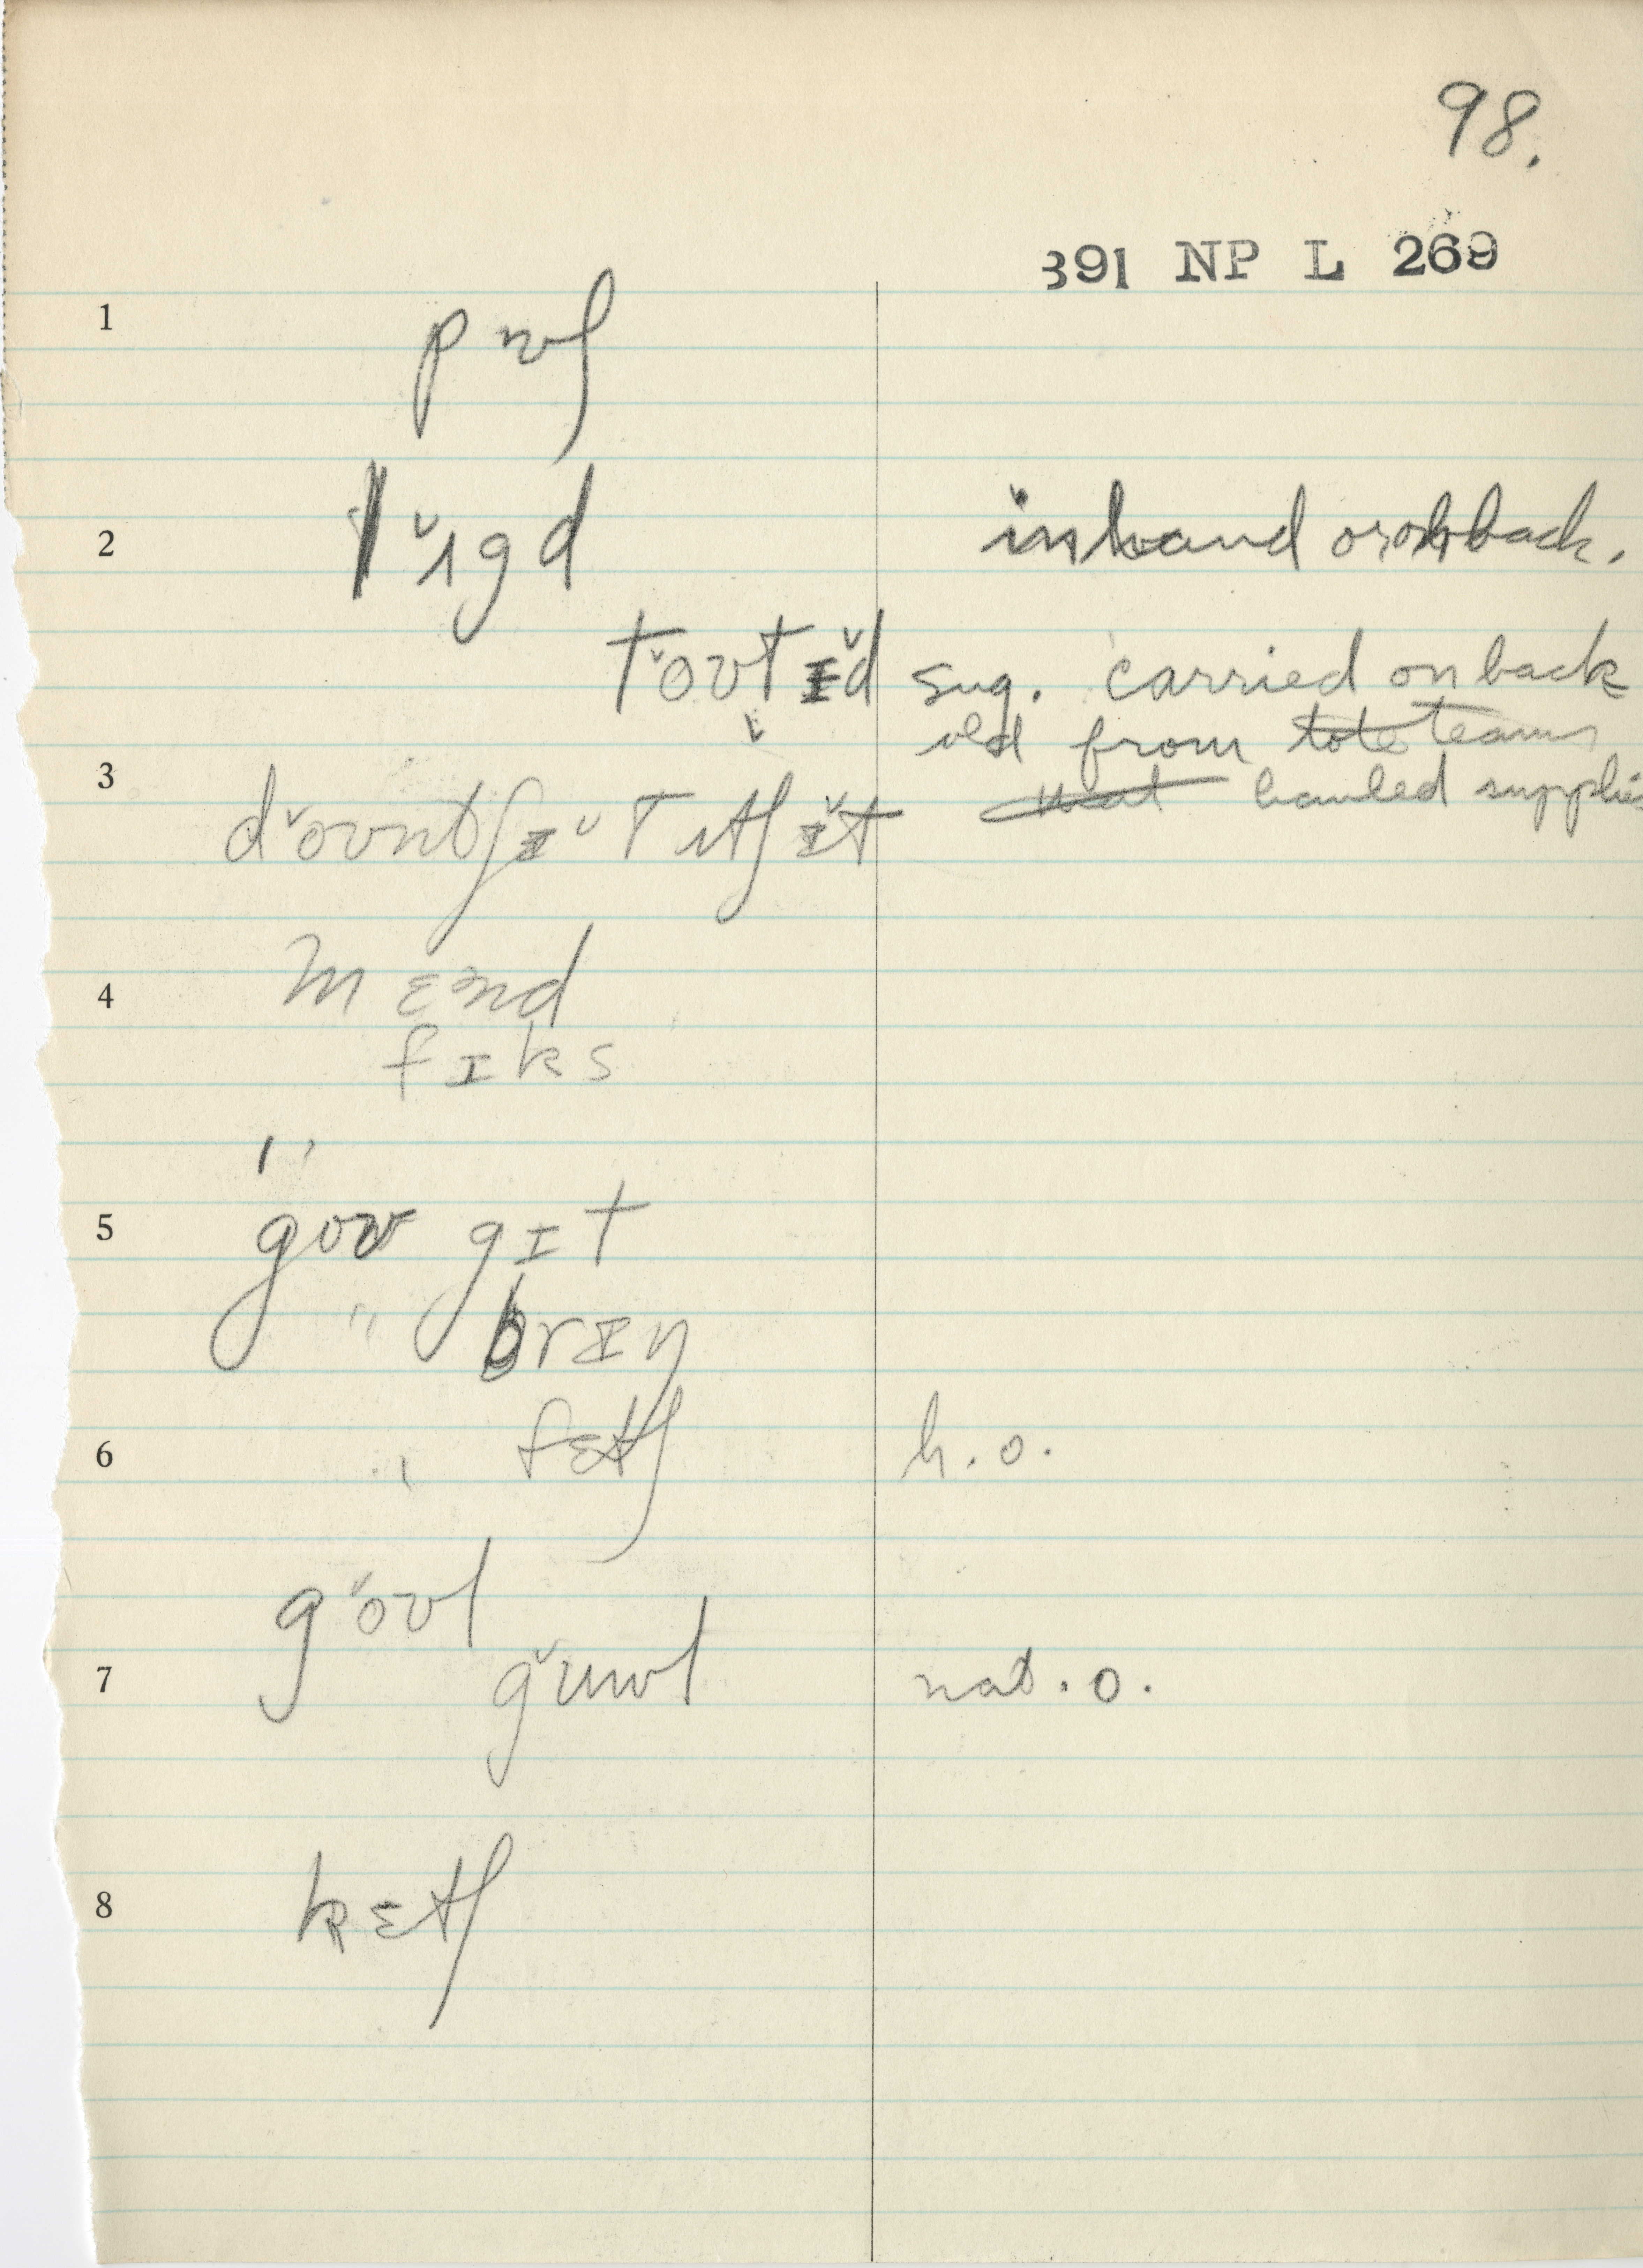 98.
391 NP L 269
1 pʊʃ
2 lˇʌgd in hand or on back.
tˇoʊtɪˇd sug. carried on back
old from tote teams
3 hauled supplies
dˇoʊntʃɪˇʊ tʌtʃ ɪˇt
4 mɛnd
fɪks
5 goʊ gɪt
" brɪŋ
6 " fɛtʃ h.o.
gˇoʊl
7 gˇuʊl nat. o.
8 kɛtʃ